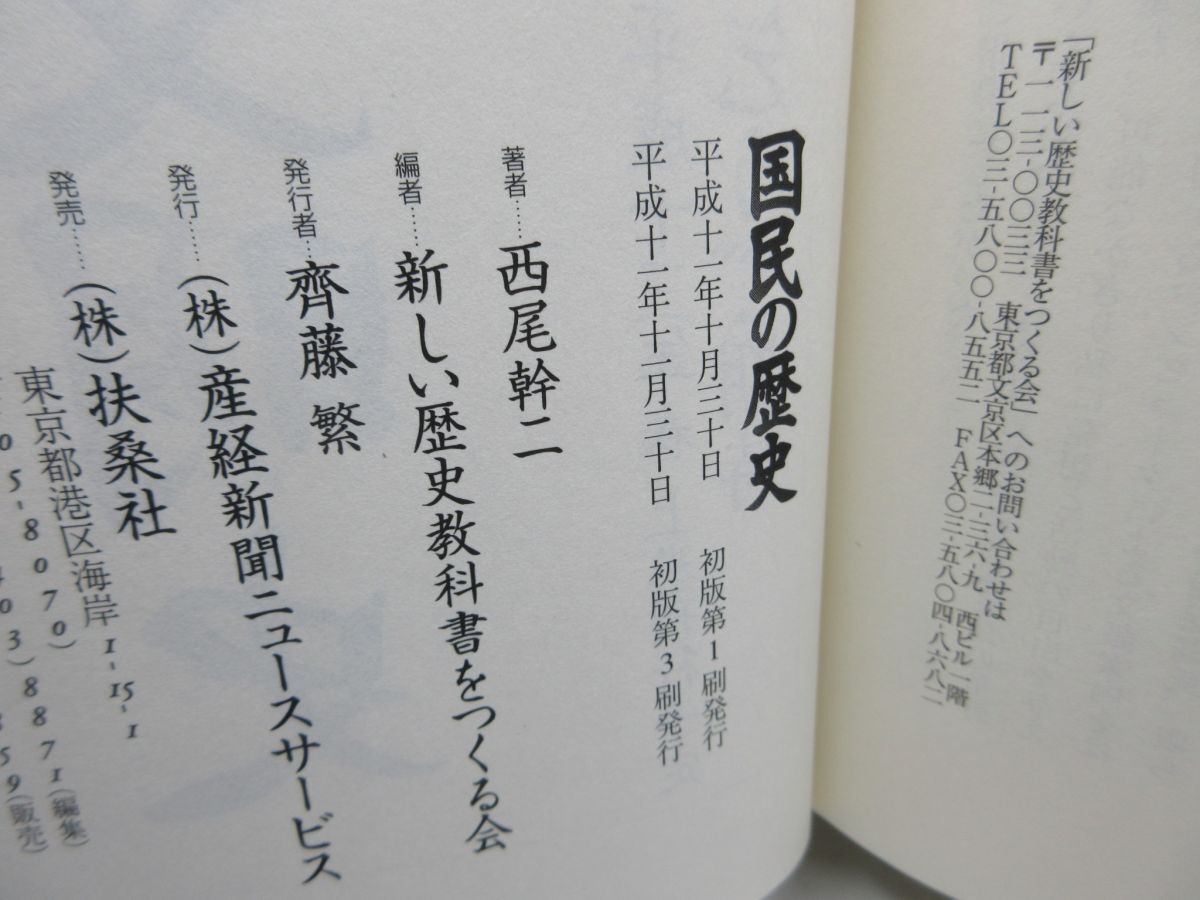 「新しい歴史教科書をつくる会」へのお問い合わせは
〒一一三-〇〇三三 東京都文京区本郷二-三六-九 西ビル一階
TEL〇三-五八〇〇-八五五二 FAX〇三-五八〇四-八六八二
国民の歴史
平成十一年十月三十日 初版第1刷発行
平成十一年十一月三十日 初版第3刷発行
著者……西尾幹二
編者……新しい歴史教科書をつくる会
発行者…齊藤 繁
発行……(株)産経新聞ニュースサービス
発売……(株)扶桑社
東京都港区海岸1-15-1
05-8070)
403)8871(編集)
859(販売)